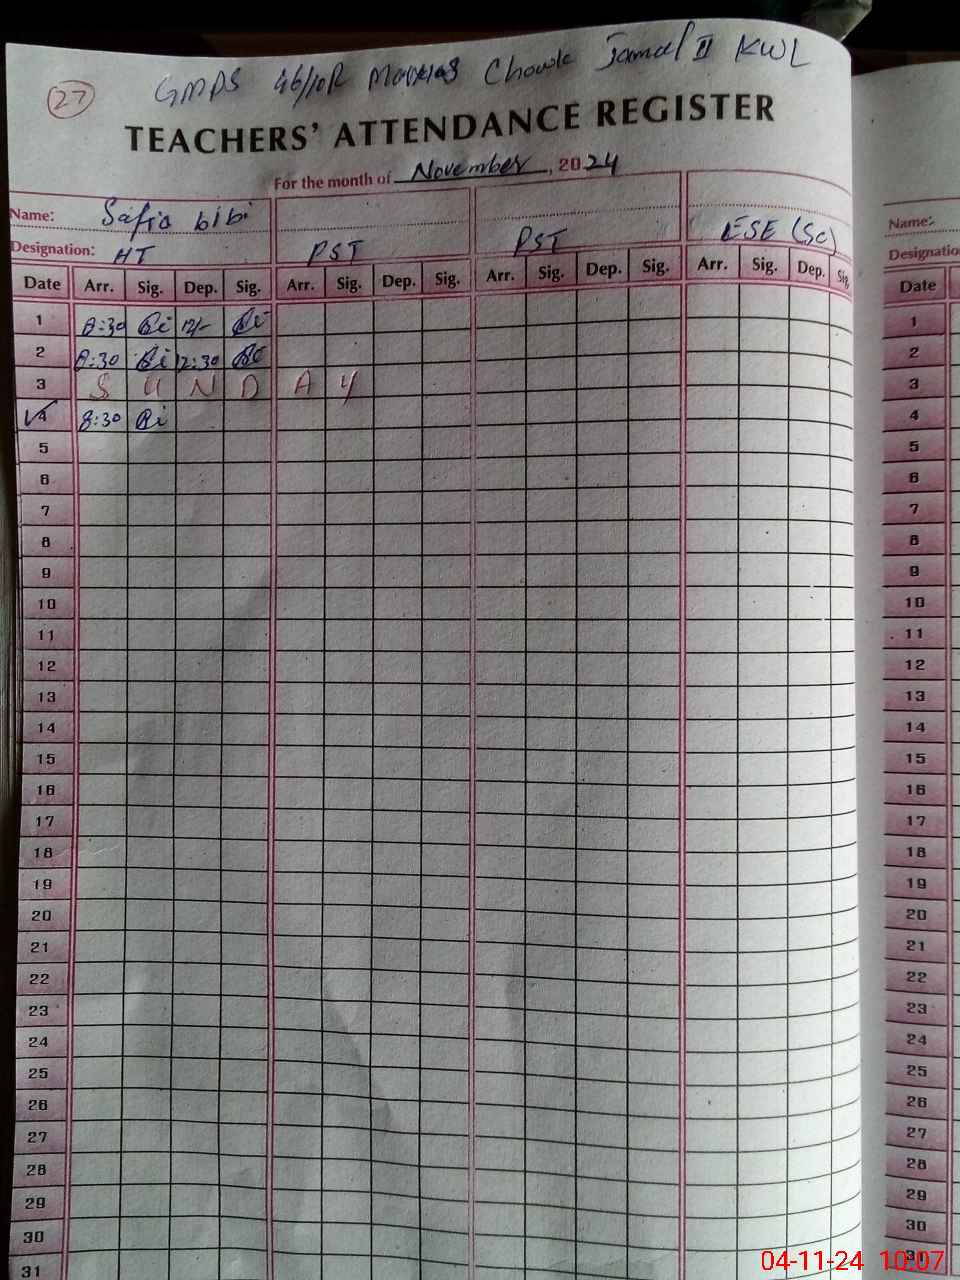 27
GMPS 46/10R Chowk Jamal II KWL
TEACHERS' ATTENDANCE REGISTER
For the month of November, 2024
Name: Safia bibi
Designation: HT PST PST ESE (Sc)
Date Arr. Sig. Dep. Sig. Arr. Sig. Dep. Sig. Arr. Sig. Dep. Sig. Arr. Sig. Dep. Sig.
1 8:30 12/-
2 8:30 12:30
3 S U N D A Y
4 8:30
5
6
7
8
9
10
11
12
13
14
15
16
17
18
19
20
21
22
23
24
25
26
27
28
29
30
31
Name:
Designatio
Date
1
2
3
4
5
6
7
8
9
10
11
12
13
14
15
16
17
18
19
20
21
22
23
24
25
26
27
28
29
30
31
04-11-24 10:07